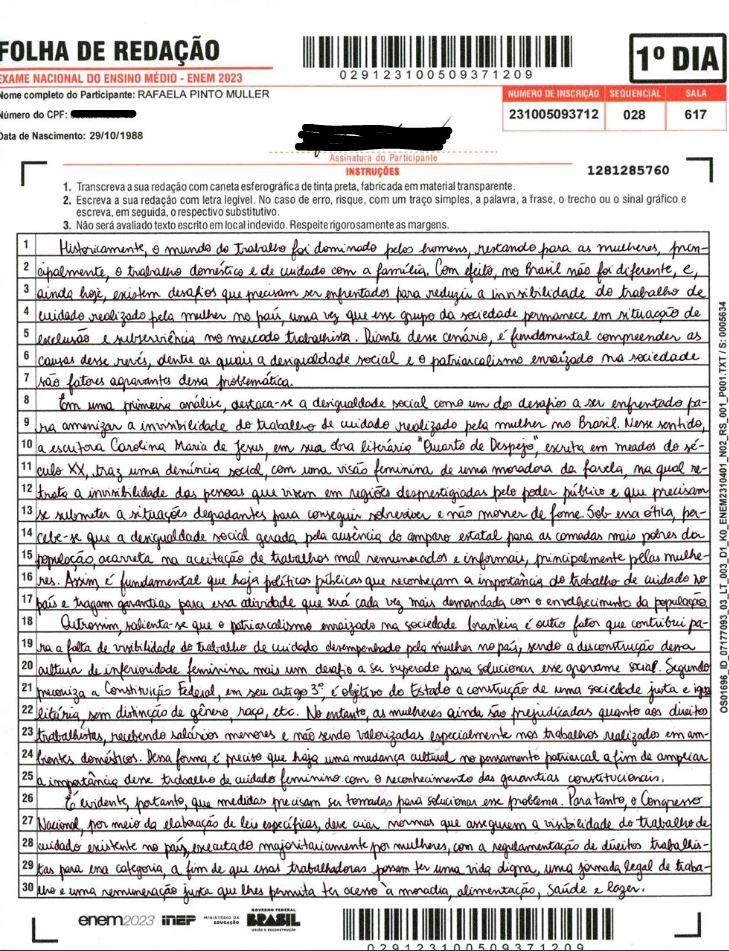 FOLHA DE REDAÇÃO
EXAME NACIONAL DO ENSINO MÉDIO - ENEM 2023
029123100509371209
1º DIA
Nome completo do Participante: RAFAELA PINTO MULLER
Número do CPF:
Data de Nascimento: 29/10/1988
NUMERO DE INSCRIÇÃO SEQUENCIAL SALA
231005093712 028 617
Assinatura do Participante
INSTRUÇÕES
1281285760
1. Transcreva a sua redação com caneta esferográfica de tinta preta, fabricada em material transparente.
2. Escreva a sua redação com letra legível. No caso de erro, risque, com um traço simples, a palavra, a frase, o trecho ou o sinal gráfico e
escreva, em seguida, o respectivo substitutivo.
3. Não será avaliado texto escrito em local indevido. Respeite rigorosamente as margens.
1 Historicamente, o mundo do trabalho foi dominado pelos homens, restando para as mulheres, prin-
2 cipalmente, o trabalho doméstico e de cuidado com a família. Com efeito, no Brasil não foi diferente, e,
3 ainda hoje, existem desafios que precisam ser enfrentados para reduzir a invisibilidade do trabalho de
4 cuidado realizado pela mulher no país, uma vez que esse grupo da sociedade permanece em situação de
5 exclusão e subserviência no mercado trabalhista. Diante desse cenário, é fundamental compreender as
6 causas desse revés, dentre as quais a desigualdade social e o patriarcalismo enraizado na sociedade
7 são fatores agravantes dessa problemática.
8 Em uma primeira análise, destaca-se a desigualdade social como um dos desafios a ser enfrentado pa-
9 ra amenizar a invisibilidade do trabalho de cuidado realizado pela mulher no Brasil. Nesse sentido,
10 a escritora Carolina Maria de Jesus, em sua obra literária "Quarto de Despejo", escrita em meados do sé-
11 culo XX, traz uma denúncia social, com uma visão feminina de uma moradora da favela, na qual re-
12 trata a invisibilidade das pessoas que vivem em regiões desprestigiadas pelo poder público e que precisam
13 se submeter a situações degradantes para conseguir sobreviver e não morrer de fome. Sob essa ótica, per-
14 cebe-se que a desigualdade social gerada pela ausência do amparo estatal para as camadas mais pobres da
15 população, acarreta na aceitação de trabalhos mal remunerados e informais, principalmente pelas mulhe-
16 res. Assim é fundamental que haja políticas públicas que reconheçam a importância do trabalho de cuidado no
17 país e tragam garantias para essa atividade que será cada vez mais demandada com o envelhecimento da população.
18 Outrossim, salienta-se que o patriarcalismo enraizado na sociedade brasileira é outro fator que contribui pa-
19 ra a falta de visibilidade do trabalho de cuidado desempenhado pela mulher no país, sendo a desconstrução dessa
20 cultura de inferioridade feminina mais um desafio a ser superado para solucionar esse gravame social. Segundo
21 preconiza a Constituição Federal, em seu artigo 3º, é objetivo do Estado a construção de uma sociedade justa e igua
22 litária, sem distinção de gênero, raça, etc. No entanto, as mulheres ainda são prejudicadas quanto aos direitos
23 trabalhistas, recebendo salários menores e não sendo valorizadas especialmente nos trabalhos realizado em am-
24 bientes domésticos. Dessa forma é preciso que haja uma mudança cultural no pensamento patriarcal a fim de ampliar
25 a importância desse trabalho de cuidado feminino com o reconhecimento das garantias constitucionais.
26 É evidente, portanto, que medidas precisam ser tomadas para solucionar esse problema. Para tanto, o Congresso
27 Nacional, por meio da elaboração de leis específicas, deve criar normas que assegurem a visibilidade do trabalho de
28 cuidado existente no país, executado majoritariamente por mulheres, com a regulamentação de direitos trabalhis-
29 tas para essa categoria, a fim de que essas trabalhadoras possam ter uma vida digna, uma jornada legal de traba-
30 lho e uma remuneração justa que lhes permita ter acesso a moradia, alimentação, saúde e lazer.
OS01696_ID_07177093_03_LT_003_D1_K0_ENEM2310401_N02_RS_001_P001.TXT / S: 0005634
enem2023 inep MINISTÉRIO DA EDUCAÇÃO GOVERNO FEDERAL BRASIL UNIÃO E RECONSTRUÇÃO
029123100509371209